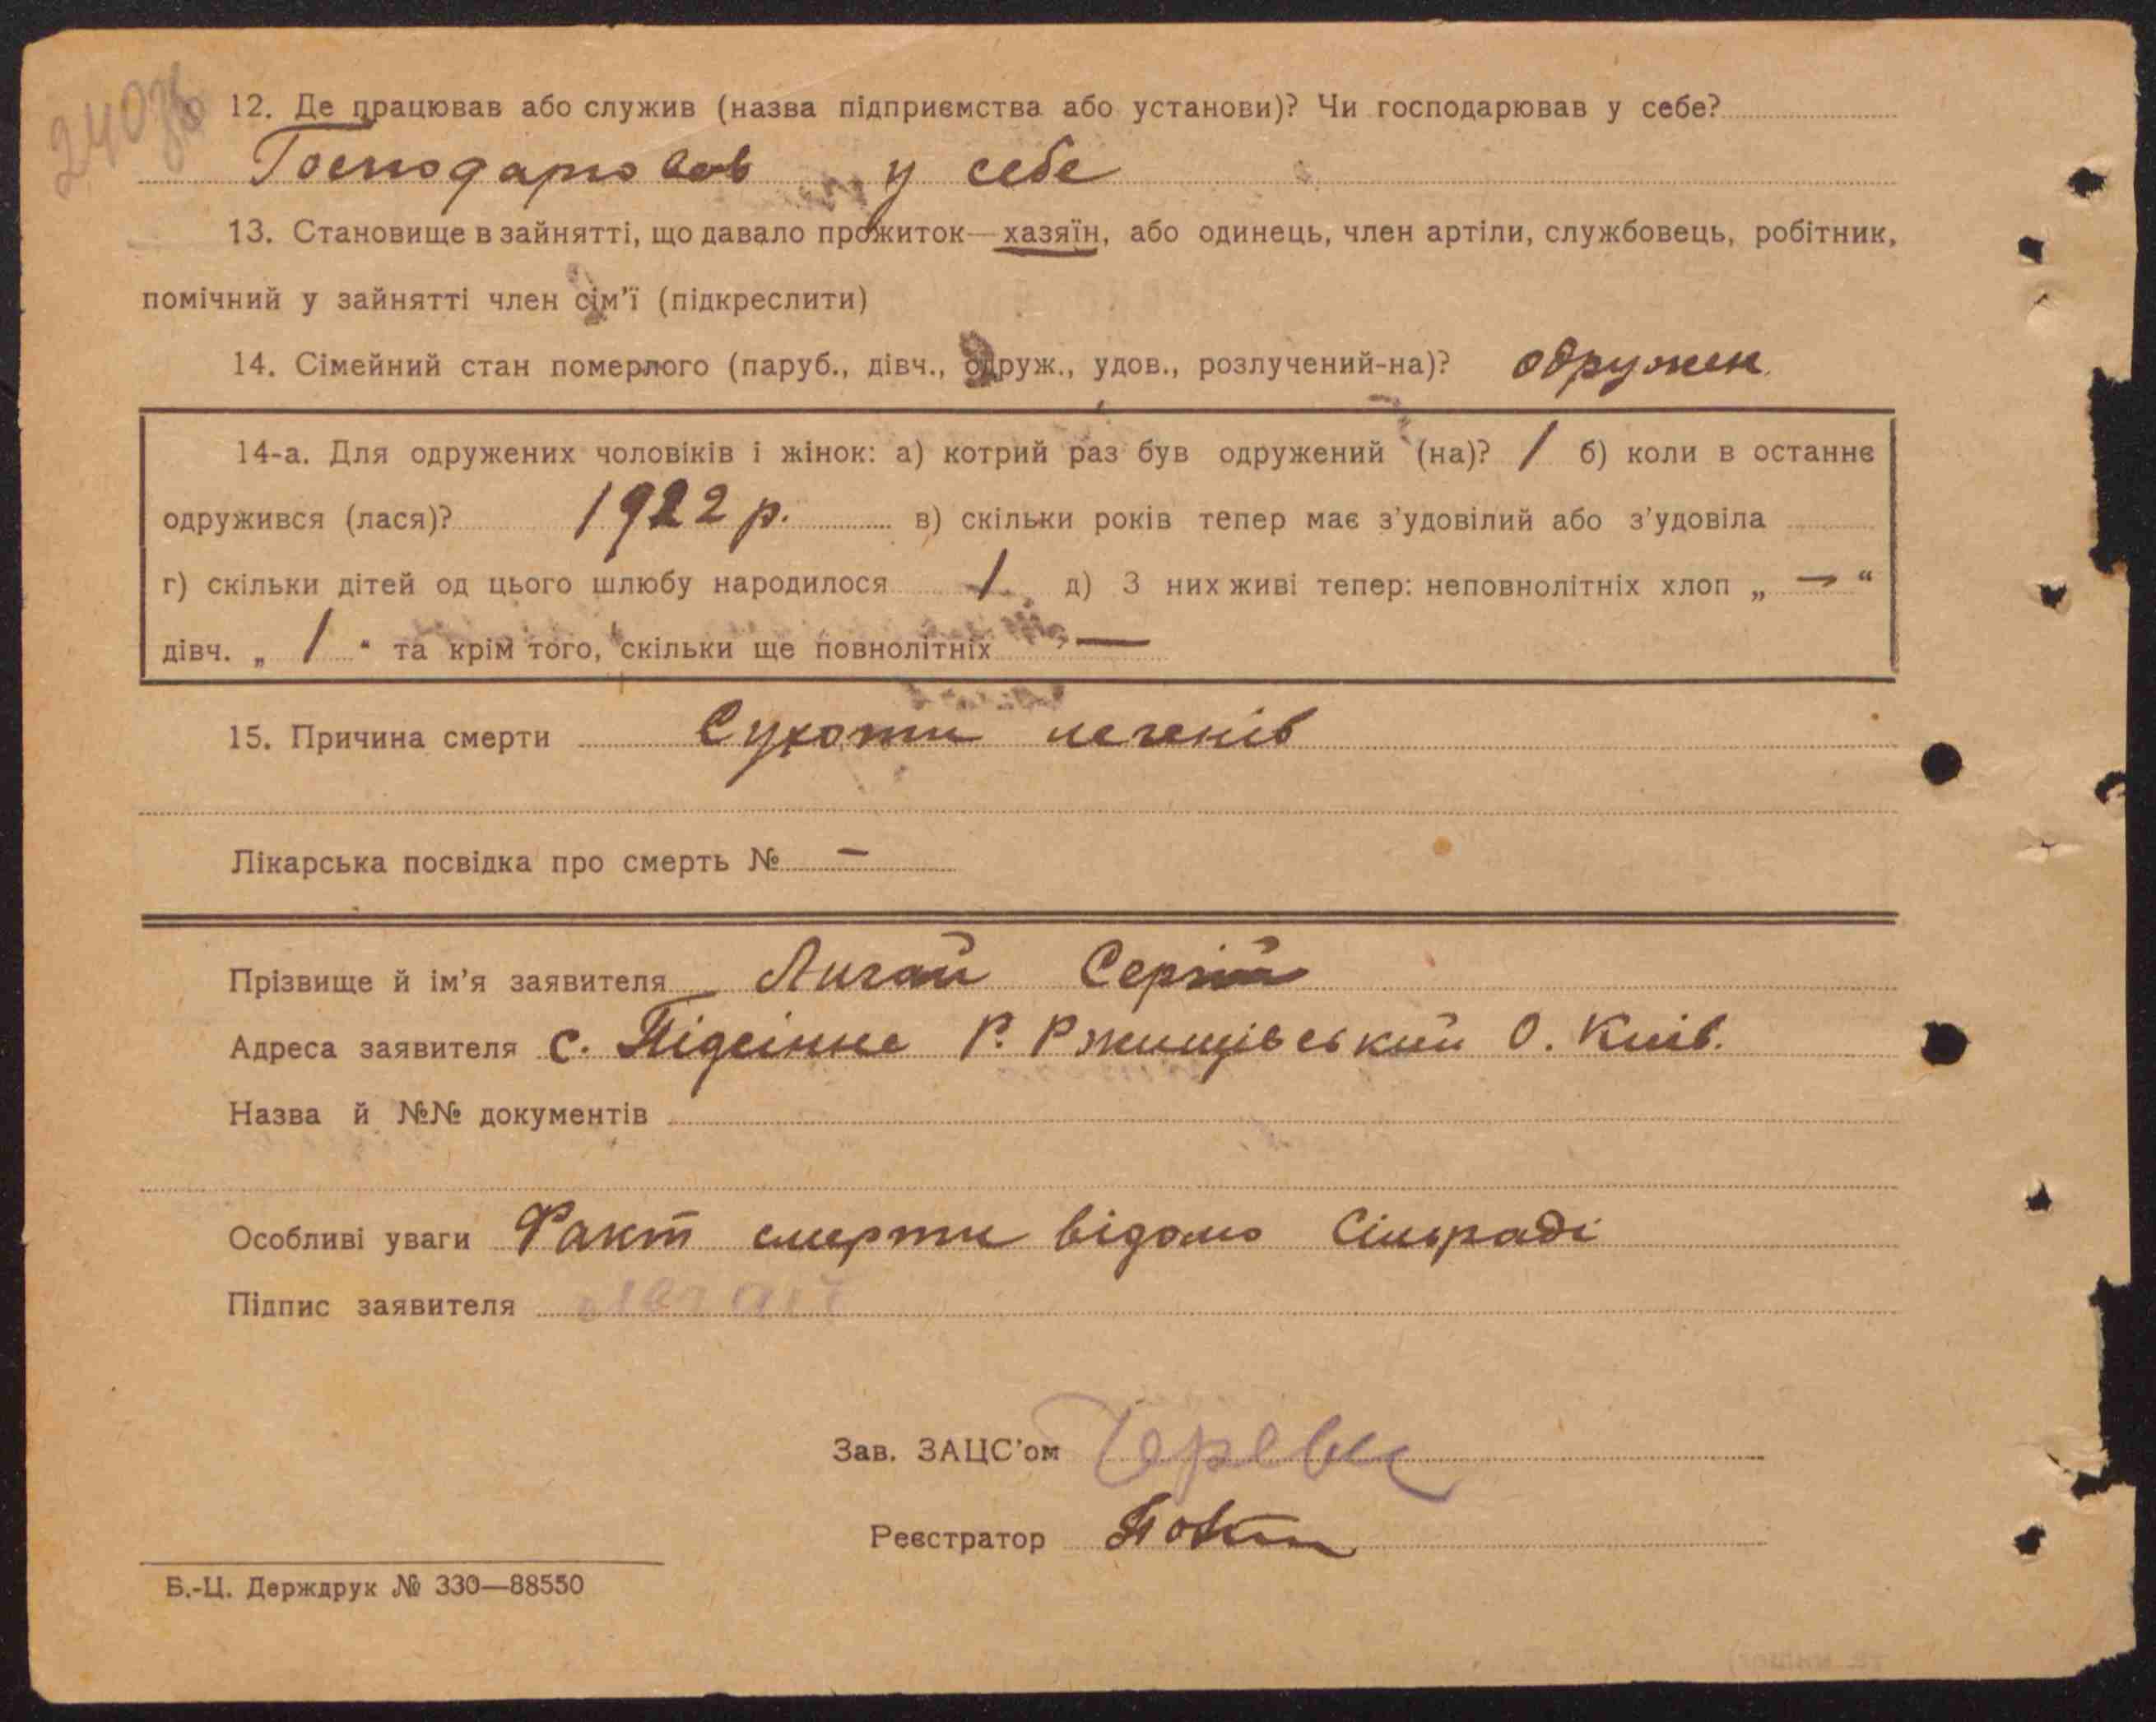 240зв
12. Де працював або служив (назва підприємства або установи)? Чи господарював у себе?
Господарював у себе
13. Становище в зайнятті, що давало прожиток—хазяїн, або одинець, член артіли, службовець, робітник,
помічний у зайнятті член сім'ї (підкреслити)
14. Сімейний стан померлого (паруб., дівч., одруж., удов., розлучений-на)? одружен
14-а. Для одружених чоловіків і жінок: а) котрий раз був одружений (на)? 1 б) коли в останнє
одружився (лася)? 1922 р. в) скільки років тепер має з'удовілий або з'удовіла
г) скільки дітей од цього шлюбу народилося 1 д) З них живі тепер: неповнолітніх хлоп „ — “
дівч. „ 1 “ та крім того, скільки ще повнолітніх —
15. Причина смерти Сухоти легенів
Лікарська посвідка про смерть № —
Прізвище й ім'я заявителя Личай Сергій
Адреса заявителя с. Підсінне Р. Ржищівський О. Київ.
Назва й №№ документів
Особливі уваги Факт смерти відомо Сільраді
Підпис заявителя
Зав. ЗАЦС'ом
Реєстратор
Б.-Ц. Держдрук № 330—88550